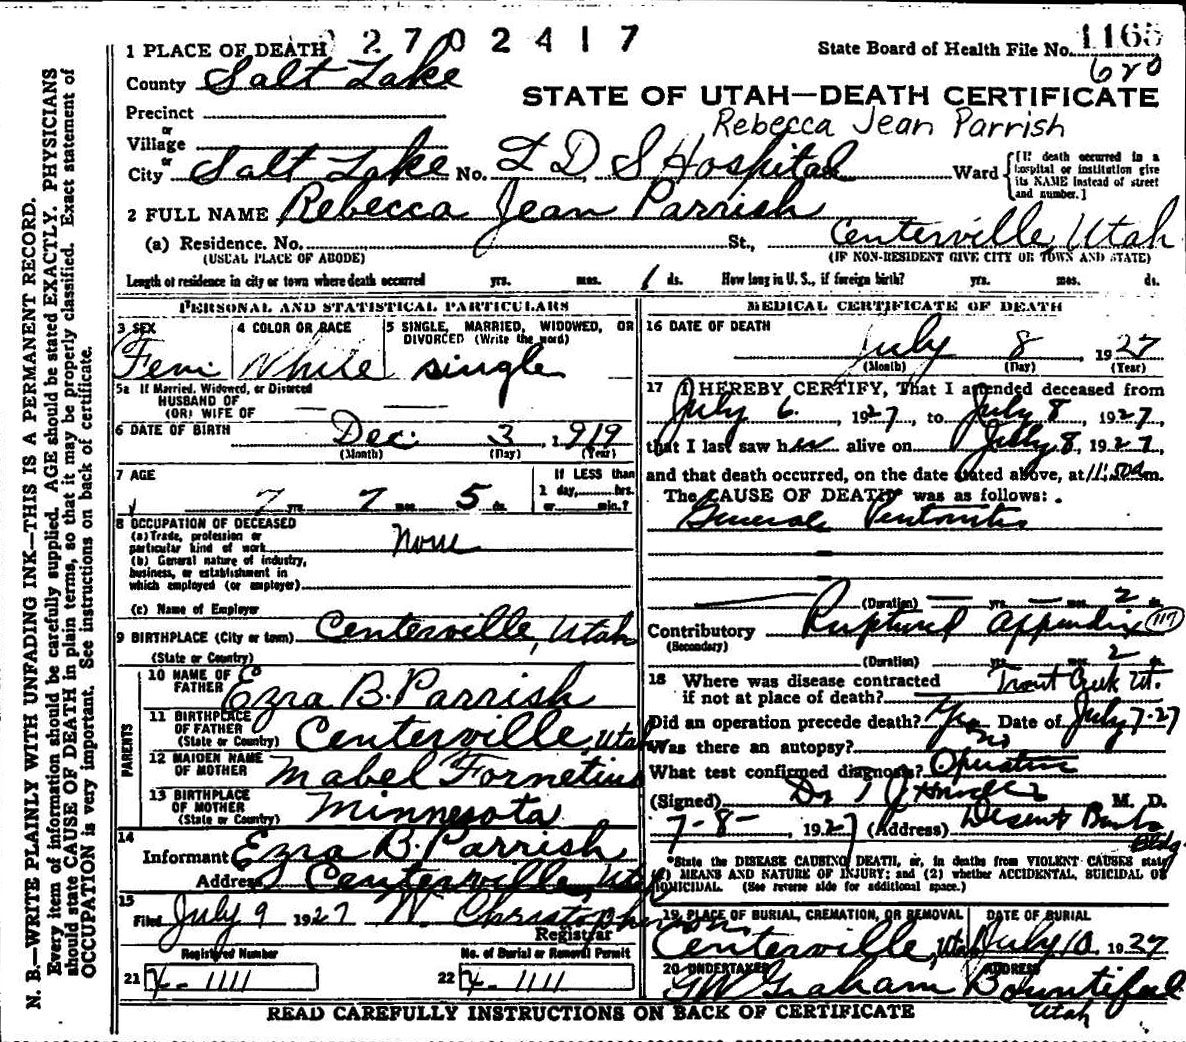 2702417
1 PLACE OF DEATH
State Board of Health File No. 1165
620
County Salt Lake
STATE OF UTAH—DEATH CERTIFICATE
Precinct
Rebecca Jean Parrish
or
Village
or
City Salt Lake No. L D S Hospital Ward [If death occurred in a hospital or institution give its NAME instead of street and number.]
2 FULL NAME Rebecca Jean Parrish
(a) Residence. No. St., Centerville, Utah
(USUAL PLACE OF ABODE) (IF NON-RESIDENT GIVE CITY OR TOWN AND STATE)
Length of residence in city or town where death occurred yrs. mos. 1 ds. How long in U. S., if foreign birth? yrs. mos. ds.
PERSONAL AND STATISTICAL PARTICULARS
3 SEX 4 COLOR OR RACE 5 SINGLE, MARRIED, WIDOWED, OR
DIVORCED (Write the word)
Fem White single
5a If Married, Widowed, or Divorced
HUSBAND OF
(OR) WIFE OF
6 DATE OF BIRTH Dec. 3, 1919
(Month) (Day) (Year)
7 AGE If LESS than
1 day, hrs.
7 yrs. 7 mos. 5 ds. or min.?
8 OCCUPATION OF DECEASED
(a) Trade, profession or
particular kind of work None
(b) General nature of industry,
business, or establishment in
which employed (or employer)
(c) Name of Employer
9 BIRTHPLACE (City or town) Centerville, Utah
(State or Country)
PARENTS
10 NAME OF
FATHER Ezra B. Parrish
11 BIRTHPLACE
OF FATHER
(State or Country) Centerville, Utah
12 MAIDEN NAME
OF MOTHER Mabel Fornetius
13 BIRTHPLACE
OF MOTHER
(State or Country) Minnesota
14
Informant Ezra B. Parrish
Address Centerville, Utah
15
Filed July 9 1927 W. Christopherson
Registrar
Registered Number No. of Burial or Removal Permit
21 X-1111 22 X-1111
MEDICAL CERTIFICATE OF DEATH
16 DATE OF DEATH
July 8, 1927
(Month) (Day) (Year)
17 I HEREBY CERTIFY, That I attended deceased from
July 6, 1927, to July 8, 1927,
that I last saw her alive on July 8, 1927,
and that death occurred, on the date stated above, at 11:50 m.
The CAUSE OF DEATH was as follows:
General Peritonitis
(Duration) yrs. mos. 2 ds.
Contributory Ruptured Appendix 117
(Secondary)
(Duration) yrs. mos. 2 ds.
18 Where was disease contracted
if not at place of death? Trout Creek Ut.
Did an operation precede death? Yes Date of July 7-27
Was there an autopsy? no
What test confirmed diagnosis? Operation
(Signed) Dr T J Howells M. D.
7-8-, 1927 (Address) Deseret Bank
Bldg
*State the DISEASE CAUSING DEATH, or, in deaths from VIOLENT CAUSES state
(1) MEANS AND NATURE OF INJURY; and (2) whether ACCIDENTAL, SUICIDAL OR
HOMICIDAL. (See reverse side for additional space.)
19 PLACE OF BURIAL, CREMATION, OR REMOVAL DATE OF BURIAL
Centerville, Utah July 10, 1927
20 UNDERTAKER ADDRESS
GW Graham Bountiful
Utah
READ CAREFULLY INSTRUCTIONS ON BACK OF CERTIFICATE
N. B.—WRITE PLAINLY WITH UNFADING INK—THIS IS A PERMANENT RECORD.
Every item of information should be carefully supplied. AGE should be stated EXACTLY. PHYSICIANS
should state CAUSE OF DEATH in plain terms, so that it may be properly classified. Exact statement of
OCCUPATION is very important. See instructions on back of certificate.